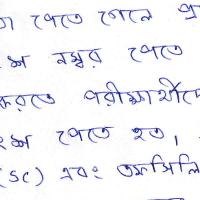 পেতে গেলে
নম্বর পেতে
করতে পরীক্ষার্থীদে
পেতে হত ,
(SC) এবং তফসিলি